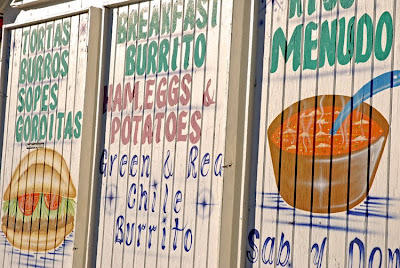 TORTAS
BURROS
SOPES
GORDITAS
BREAKFAST
BURRITO
HAM, EGGS &
POTATOES
Green & Red
Chile
Burrito
MENUDO
Sab y Dom